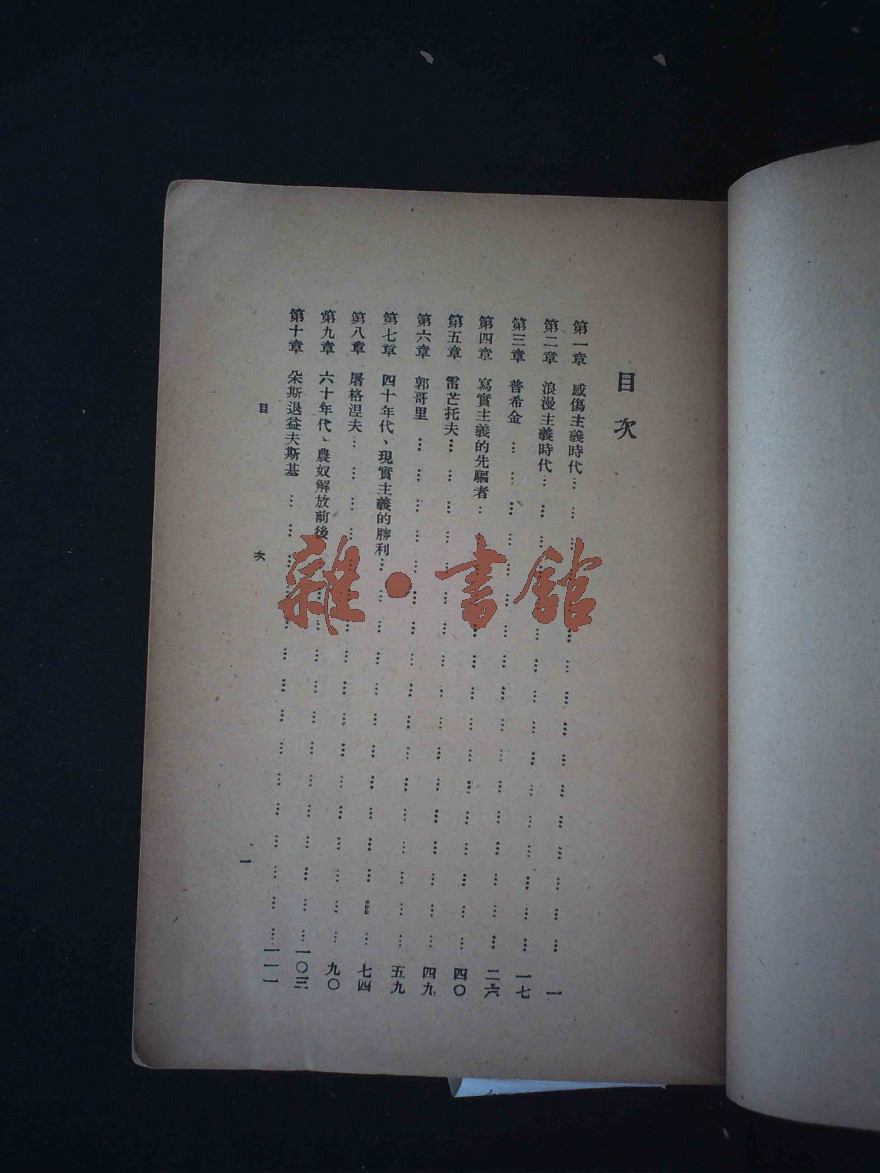 目次
第一章 感傷主義時代……一
第二章 浪漫主義時代……一七
第三章 普希金……二六
第四章 寫實主義的先驅者……四〇
第五章 雷芒托夫……四九
第六章 郭哥里……五九
第七章 四十年代、現實主義的勝利……七四
第八章 屠格涅夫……九〇
第九章 六十年代、農奴解放前後……一〇三
第十章 朵斯退益夫斯基……一一一
目次 一
雜·書館